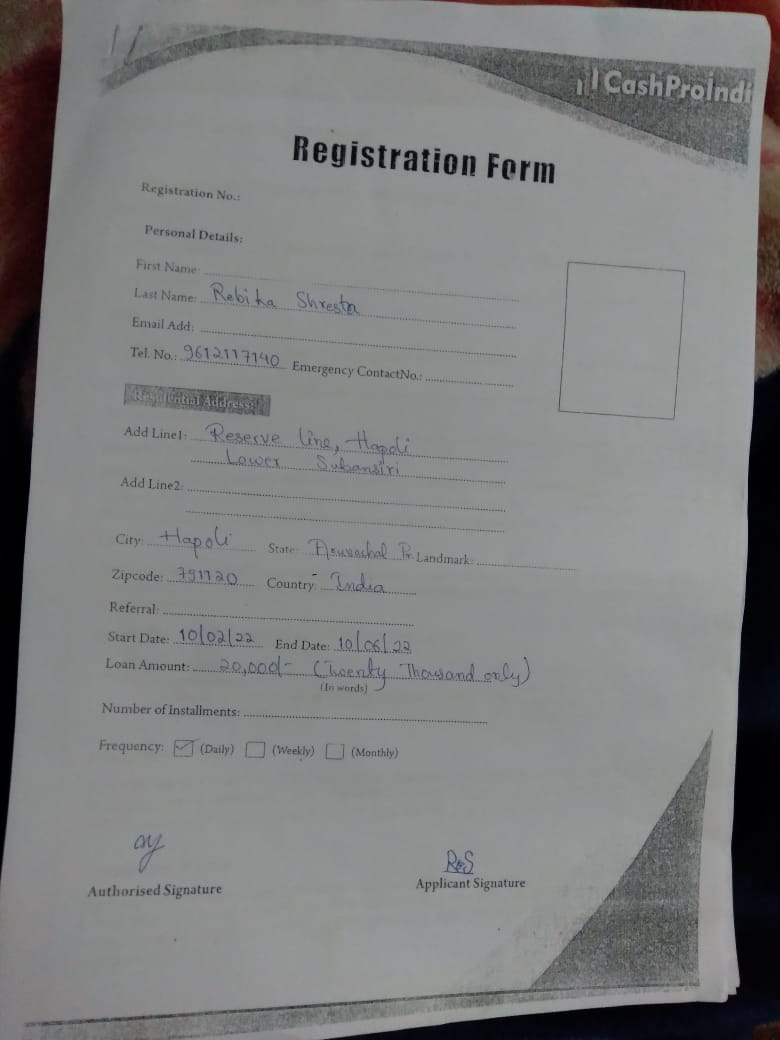 CashProIndi
Registration Form
Registration No.:
Personal Details:
First Name:
Last Name: Rebika Shresta
Email Add:
Tel. No.: 9612117140 Emergency ContactNo.:
Residential Address:
Add Line1: Reserve line, Hapoli
Lower Subansiri
Add Line2:
City: Hapoli State: Arunachal Pr. Landmark:
Zipcode: 791120 Country: India
Referral:
Start Date: 10/02/22 End Date: 10/06/22
Loan Amount: 20,000/- (Twenty Thousand only)
(In words)
Number of Installments:
Frequency: (Daily) (Weekly) (Monthly)
Authorised Signature
Applicant Signature